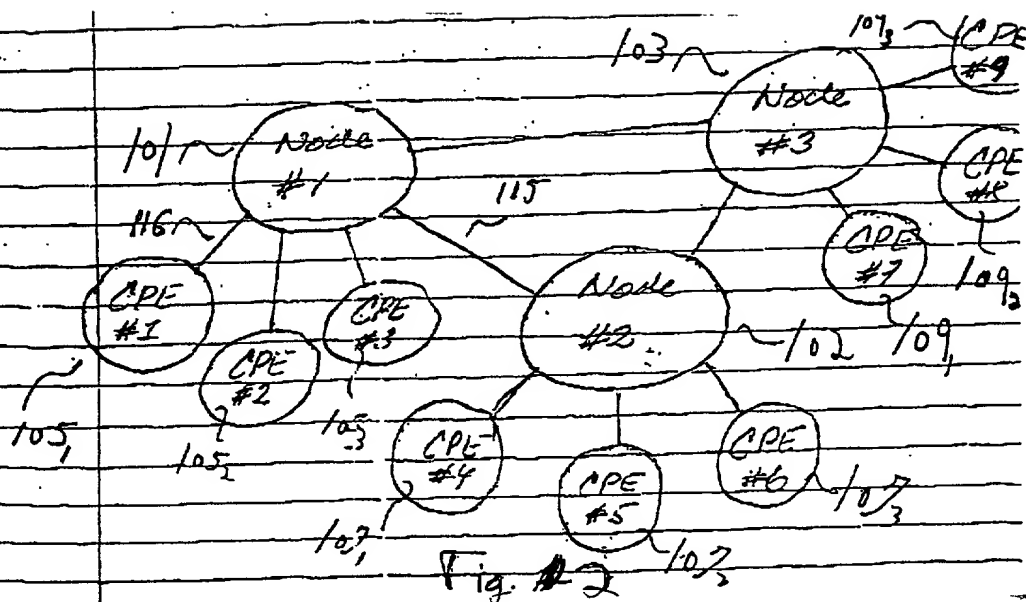 103
107₃
CPE
#9
Node
#3
101
Node
#1
CPE
#8
115
116
CPE
#7
109₂
CPE
#1
CPE
#3
Node
#2
102
109₁
CPE
#2
105₁
105₂
105₃
CPE
#4
CPE
#6
CPE
#5
107₃
107₁
107₂
Fig. #2